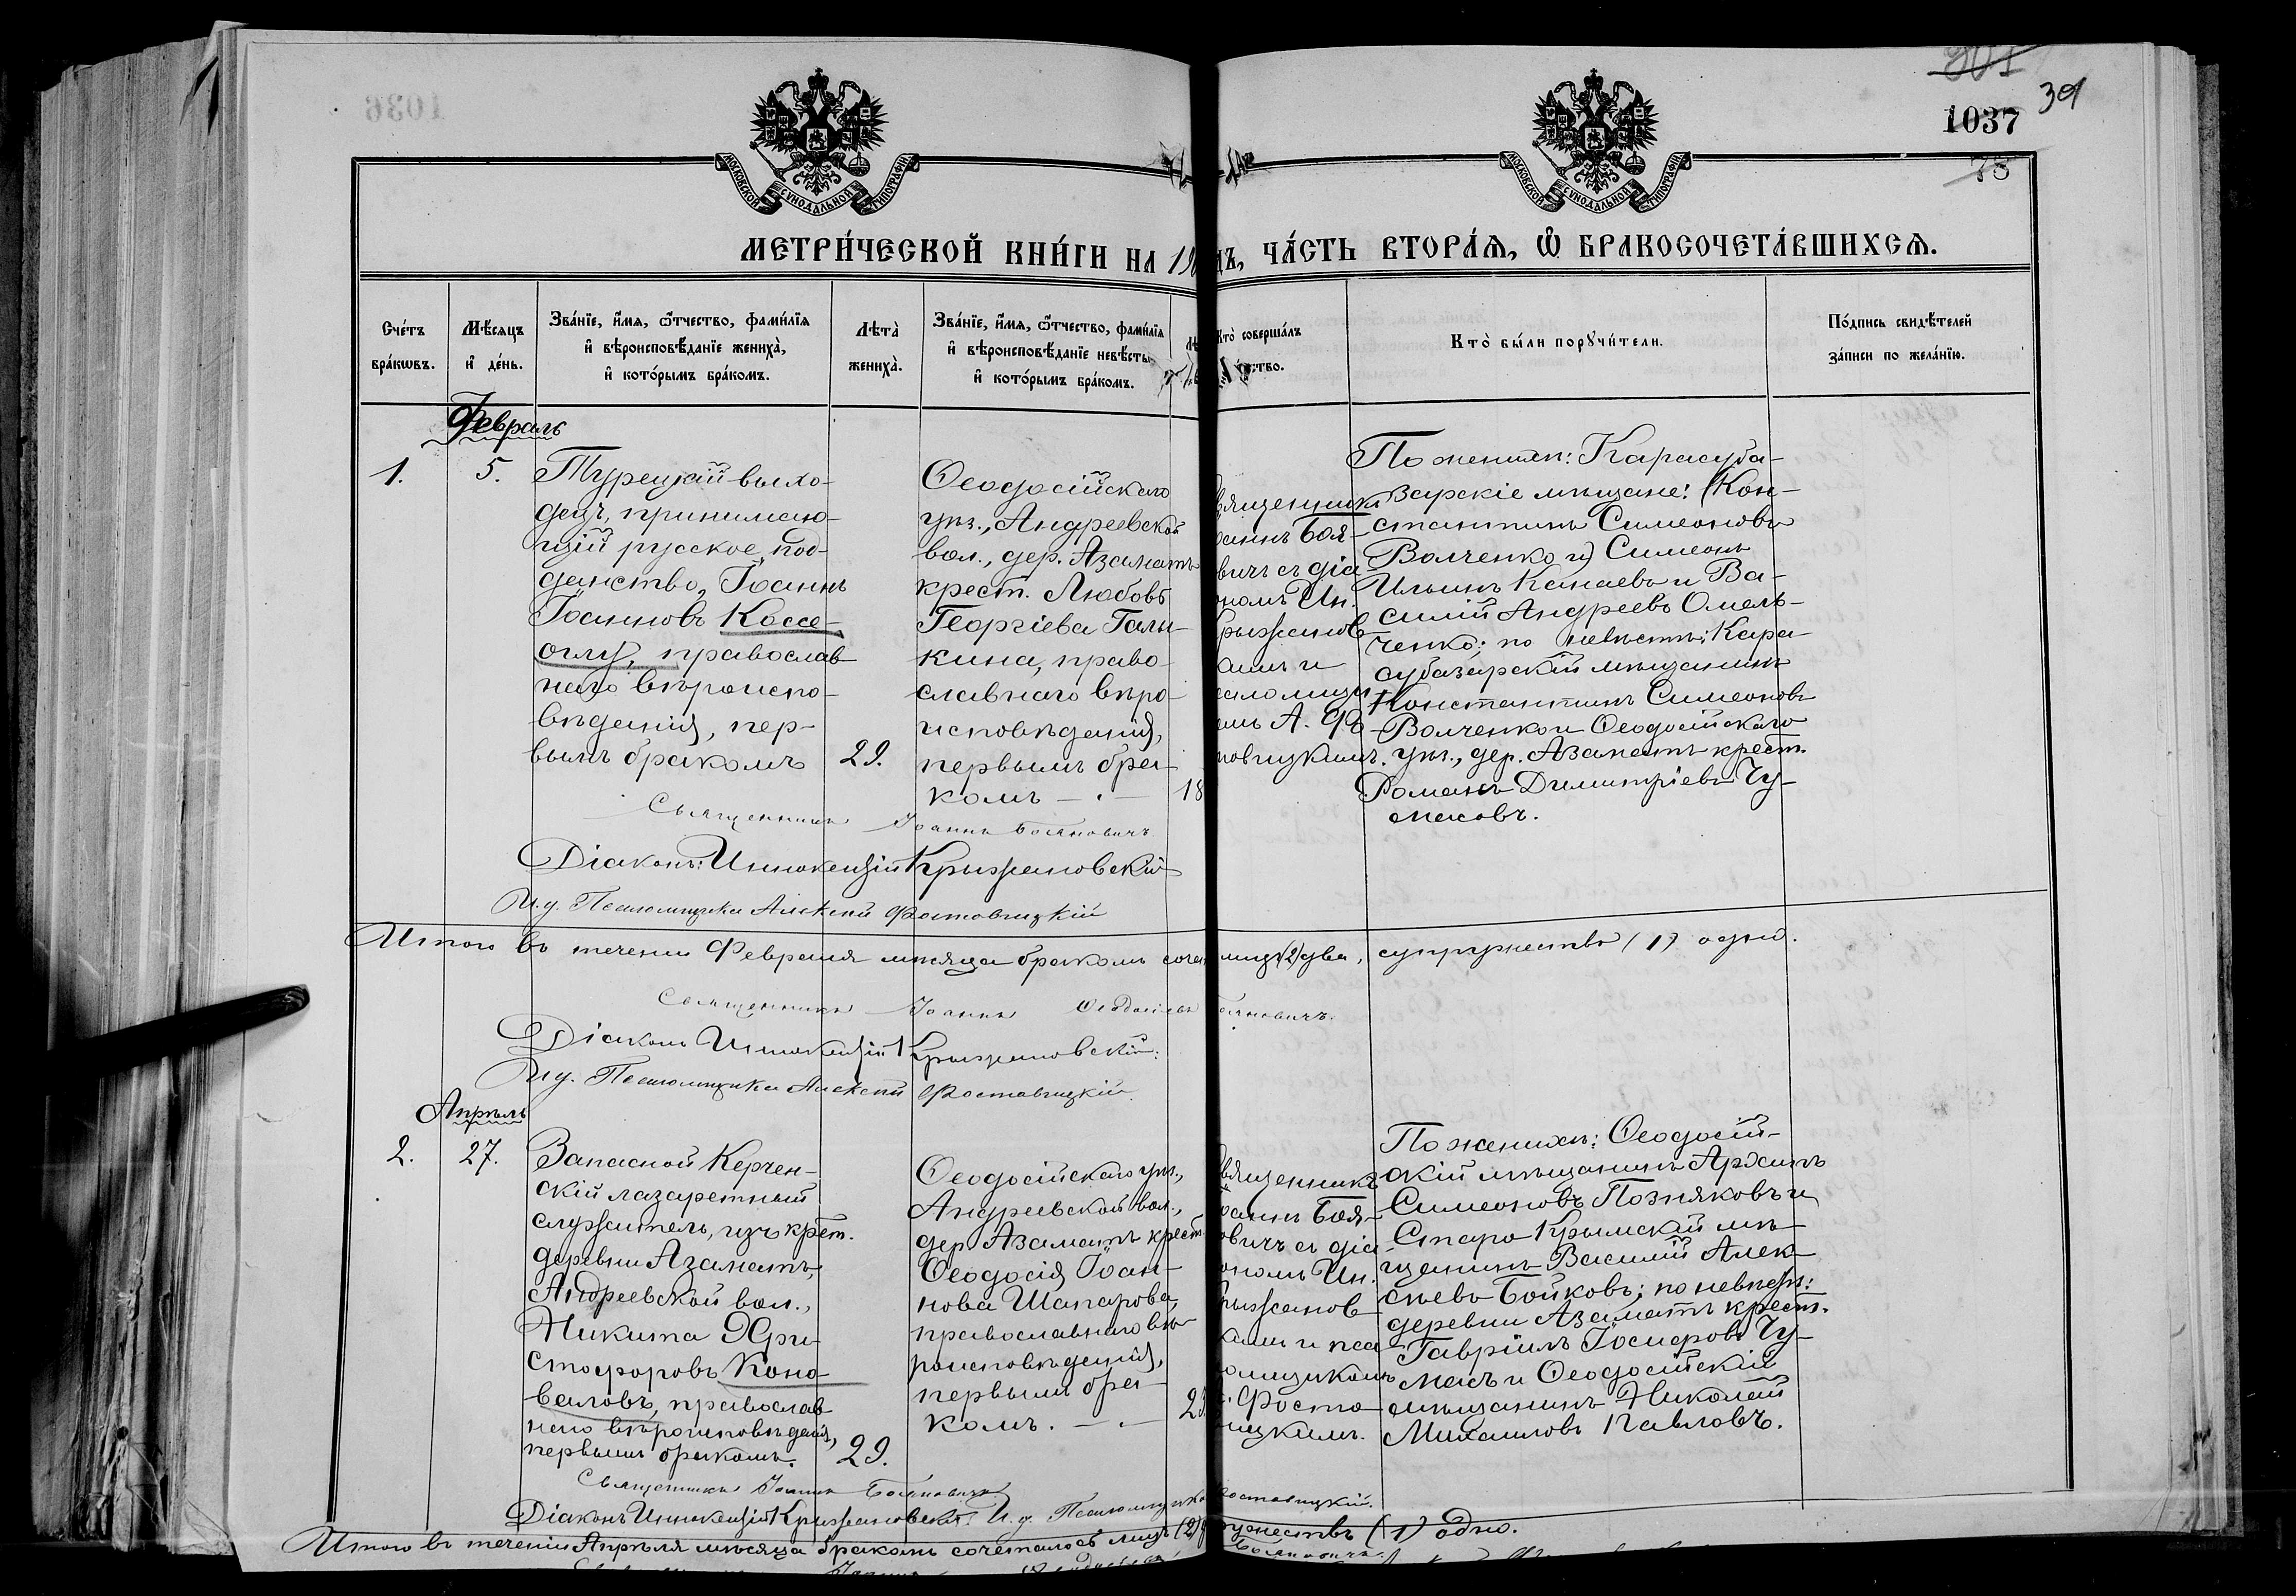 1036
801
39
1037
75
МОСКОВСКОЙ СѴНОДАЛЬНОЙ ТИПОГРАФІИ
МОСКОВСКОЙ СѴНОДАЛЬНОЙ ТИПОГРАФІИ
МЕТРИ́ЧЕСКОЙ КНИ́ГИ НА 19
дъ, ЧА́СТЬ ВТОРА́Ѧ, Ѽ БРАКОСОЧЕТА́ВШИХСѦ.
Сче́тъ
бра́кѡвъ.
Мѣ́сѧцъ
и҆ де́нь.
Зва́нїе, и҆́мѧ, ѻ҆́тчество, фамі́лїѧ
и҆ вѣроисповѣ́данїе жениха̀,
и҆ кото́рымъ бра́комъ.
Лѣта̀
жениха̀.
Зва́нїе, и҆́мѧ, ѻ҆́тчество, фамі́лїѧ
и҆ вѣроисповѣ́данїе невѣ́сты
и҆ кото́рымъ бра́комъ.
Кто̀ соверша́лъ
ство.
Кто̀ бы́ли порꙋчи́тели.
По́дпись свидѣ́телей
за́писи по жела́нїю.
Февраль
1.
5.
Турецкій выхо-
децъ, принимаю-
щій русское под-
данство, Іоаннъ
Іоанновъ Коссе-
оглу, православ-
наго вѣроиспо-
вѣданія, пер-
вымъ бракомъ
29.
Ѳеодосійскаго
уѣз., Андреевской
вол., дер. Азаматъ
крест. Любовь
Георгіева Гали-
кина, право-
славнаго вѣро-
исповѣданія,
первымъ бра-
комъ —.—
18
вященникъ
оаннъ Боя-
вичъ съ діа-
ономъ Ин.
рыжанов
кимъ и
саломщи
омъ А. Фо-
товицкимъ.
По женихѣ: Карасуба-
зарскіе мѣщане: (Кон-
стантинъ Симеоновъ
Волченко и) Симеонъ
Ильинъ Канаевъ и Ва-
силій Андреевъ Омель-
ченко; по невѣстѣ: Кара-
субазарскій мѣщанинъ
Константинъ Симеоновъ
Волченко и Ѳеодосійскаго
уѣз., дер. Азаматъ крест.
Романъ Димитріевъ Чу-
маковъ.
Священникъ Іоаннъ Бояновичъ
Діаконъ: Иннокентій Крыжановскій
И. д. Псаломщика Алексѣй Фостовицкій
Итого въ теченіи Февраля мѣсяца бракомъ соче лицъ (2) два, супружество (1) одно.
Священникъ Іоаннъ Ѳеодосіевъ Бояновичъ.
Діаконъ Иннокентій Крыжановскій.
И. д. Псаломщика Алексѣй Фостовицкій.
Апрѣль
2.
27.
Запасной Керчен-
скій лазаретный
служитель, изъ крест.
деревни Азаматъ,
Андреевской вол.,
Никита Хри-
стофоровъ Коно-
валовъ, православ-
наго вѣроисповѣданія,
первымъ бракомъ.
29.
Ѳеодосійскаго уѣз.,
Андреевской вол.,
дер. Азаматъ крест.
Ѳеодосія Іоан-
нова Шапарова,
православнаго вѣ-
роисповѣданія,
первымъ бра-
комъ. —.—
вященникъ
оаннъ Боя-
овичъ съ діа-
ономъ Ин.
рыжанов
кимъ и пса
омщикомъ
Фосто
ицкимъ.
По женихѣ: Ѳеодосій-
скій мѣщанинъ Архипъ
Симеоновъ Позняковъ и
Старо Крымскій мѣ-
щанинъ Василій Алек-
сѣевъ Бойковъ; по невѣстѣ:
деревни Азаматъ крест.
Гавріилъ Іосифовъ Чу-
макъ и Ѳеодосійскій
мѣщанинъ Николай
Михаиловъ Павловъ.
Священникъ Іоаннъ Бояновичъ
Діаконъ Иннокентій Крыжановскій. И. д. Псаломщика остовицкій.
Итого въ теченіи Апрѣля мѣсяца бракомъ сочеталось лицъ (2) ружествъ (1) одно.